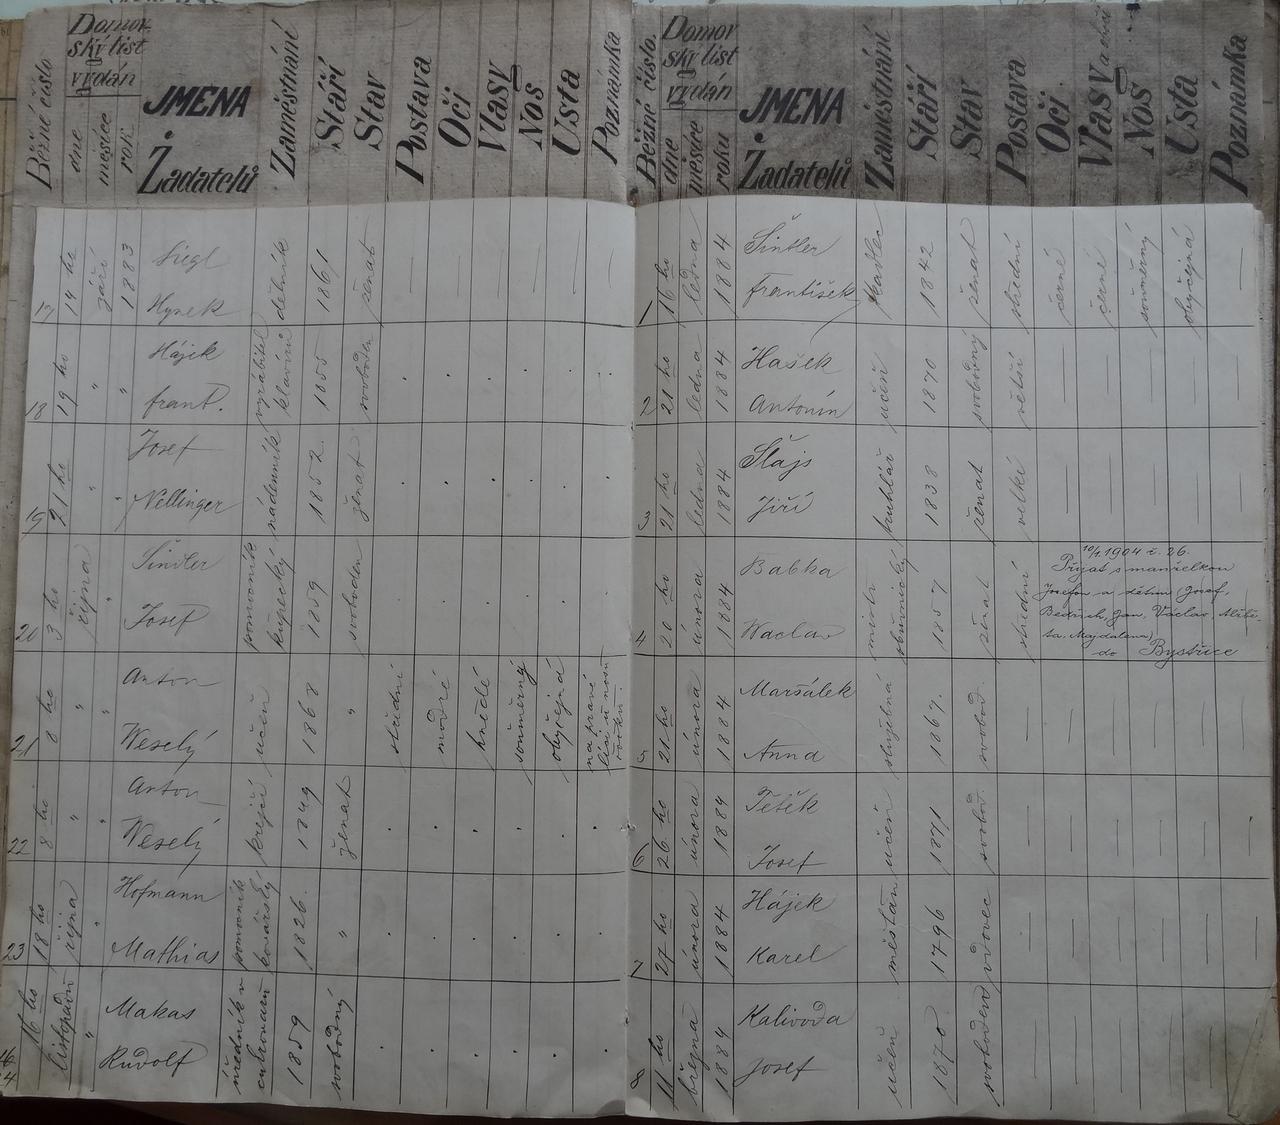 Běžné číslo
Domov-
ský list
vydán
dne
měsíce
rok
JMENA
Žadatelů
Zaměstnání
Stáří
Stav
Postava
Oči
Vlasy
Nos
Usta
Poznámka
17
14 ho
září
1883
Siegl
Hynek
dělník
1861
ženat
18
19 ho
"
"
Hájek
frant.
vyrábitel
klavírů
1855
svoboden
19
21 ho
"
"
Josef
Nellinger
nádenník
1852
ženat
20
3 ho
října
"
Šindler
Josef
pomocník
kupecký
1859
svoboden
21
8 ho
"
"
Anton
Weselý
učeň
1868
"
střední
modré
hnědé
souměrný
obyčejná
na pravé
22
8 ho
"
"
Anton
Weselý
krejčí
1849
ženat
23
18 ho
října
"
Hofmann
Mathias
pomocník
kovářský
1826
"
24
16 ho
listopadu
"
Makas
Rudolf
úředník v
cukrovaru
1859
svobodný
Běžné číslo.
Domov
ský list
vydán
dne
měsíce
roku
JMENA
Žadatelů
Zaměstnání
Stáří
Stav
Postava
Oči
Vlasy
Nos
Usta
Poznámka
1
16 ho
ledna
1884
Šindler
František
tkadlec
1842
ženat
střední
černé
černé
souměrný
obyčejná
2
21 ho
ledna
1884
Hašek
Antonín
učeň
1870
svobodný
větší
3
21 ho
ledna
1884
Šlajs
Jiří
truhlář
1838
ženat
velké
4
20 ho
února
1884
Babka
Waclav
mistr
obuvnický
1857
ženat
střední
10/1.1904 č. 26.
Přijat s manželkou
Josefou a dětmi Josef,
Bedřich, Jan, Václav, Alžbě-
ta, Magdalena,
do Bystřice
5
21 ho
února
1884
Maršálek
Anna
služebná
1867.
svobod.
6
26 ho
února
1884
Tětěk
Josef
učeň
1871
svobod.
7
27 ho
února
1884
Hájek
Karel
měšťan
1796
vdovec
8
11 ho
března
1884
Kalivoda
Josef
učeň
1870
svoboden